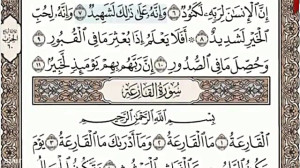 إِنَّ ٱلْإِنسَٰنَ لِرَبِّهِۦ لَكَنُودٌ ٦ وَإِنَّهُۥ عَلَىٰ ذَٰلِكَ لَشَهِيدٌ ٧ وَإِنَّهُۥ لِحُبِّ
ٱلْخَيْرِ لَشَدِيدٌ ٨ ۞ أَفَلَا يَعْلَمُ إِذَا بُعْثِرَ مَا فِى ٱلْقُبُورِ ٩
وَحُصِّلَ مَا فِى ٱلصُّدُورِ ١٠ إِنَّ رَبَّهُم بِهِمْ يَوْمَئِذٍ لَّخَبِيرٌۢ ١١
سُورَةُ القَارِعَةِ
بِسْمِ ٱللَّهِ ٱلرَّحْمَٰنِ ٱلرَّحِيمِ
ٱلْقَارِعَةُ ١ مَا ٱلْقَارِعَةُ ٢ وَمَآ أَدْرَىٰكَ مَا ٱلْقَارِعَةُ ٣ يَوْمَ